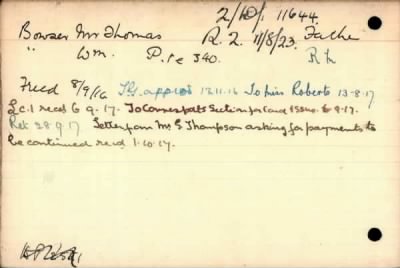 2/10/ 11644.
Bowser Mr Thomas R. 2. 11/8/23. Father
" Wm. Pte 340. R h
Freed 8/9/16 appros 13.11.16 To Miss Roberts 13-8-17
L.c.1 recd 6 9.17. To Corres pdts Section for Card 6-9-17.
Ret 28.9.17 Letter from Mrs G Thompson asking for payments to
be continued recd 1.10.17.